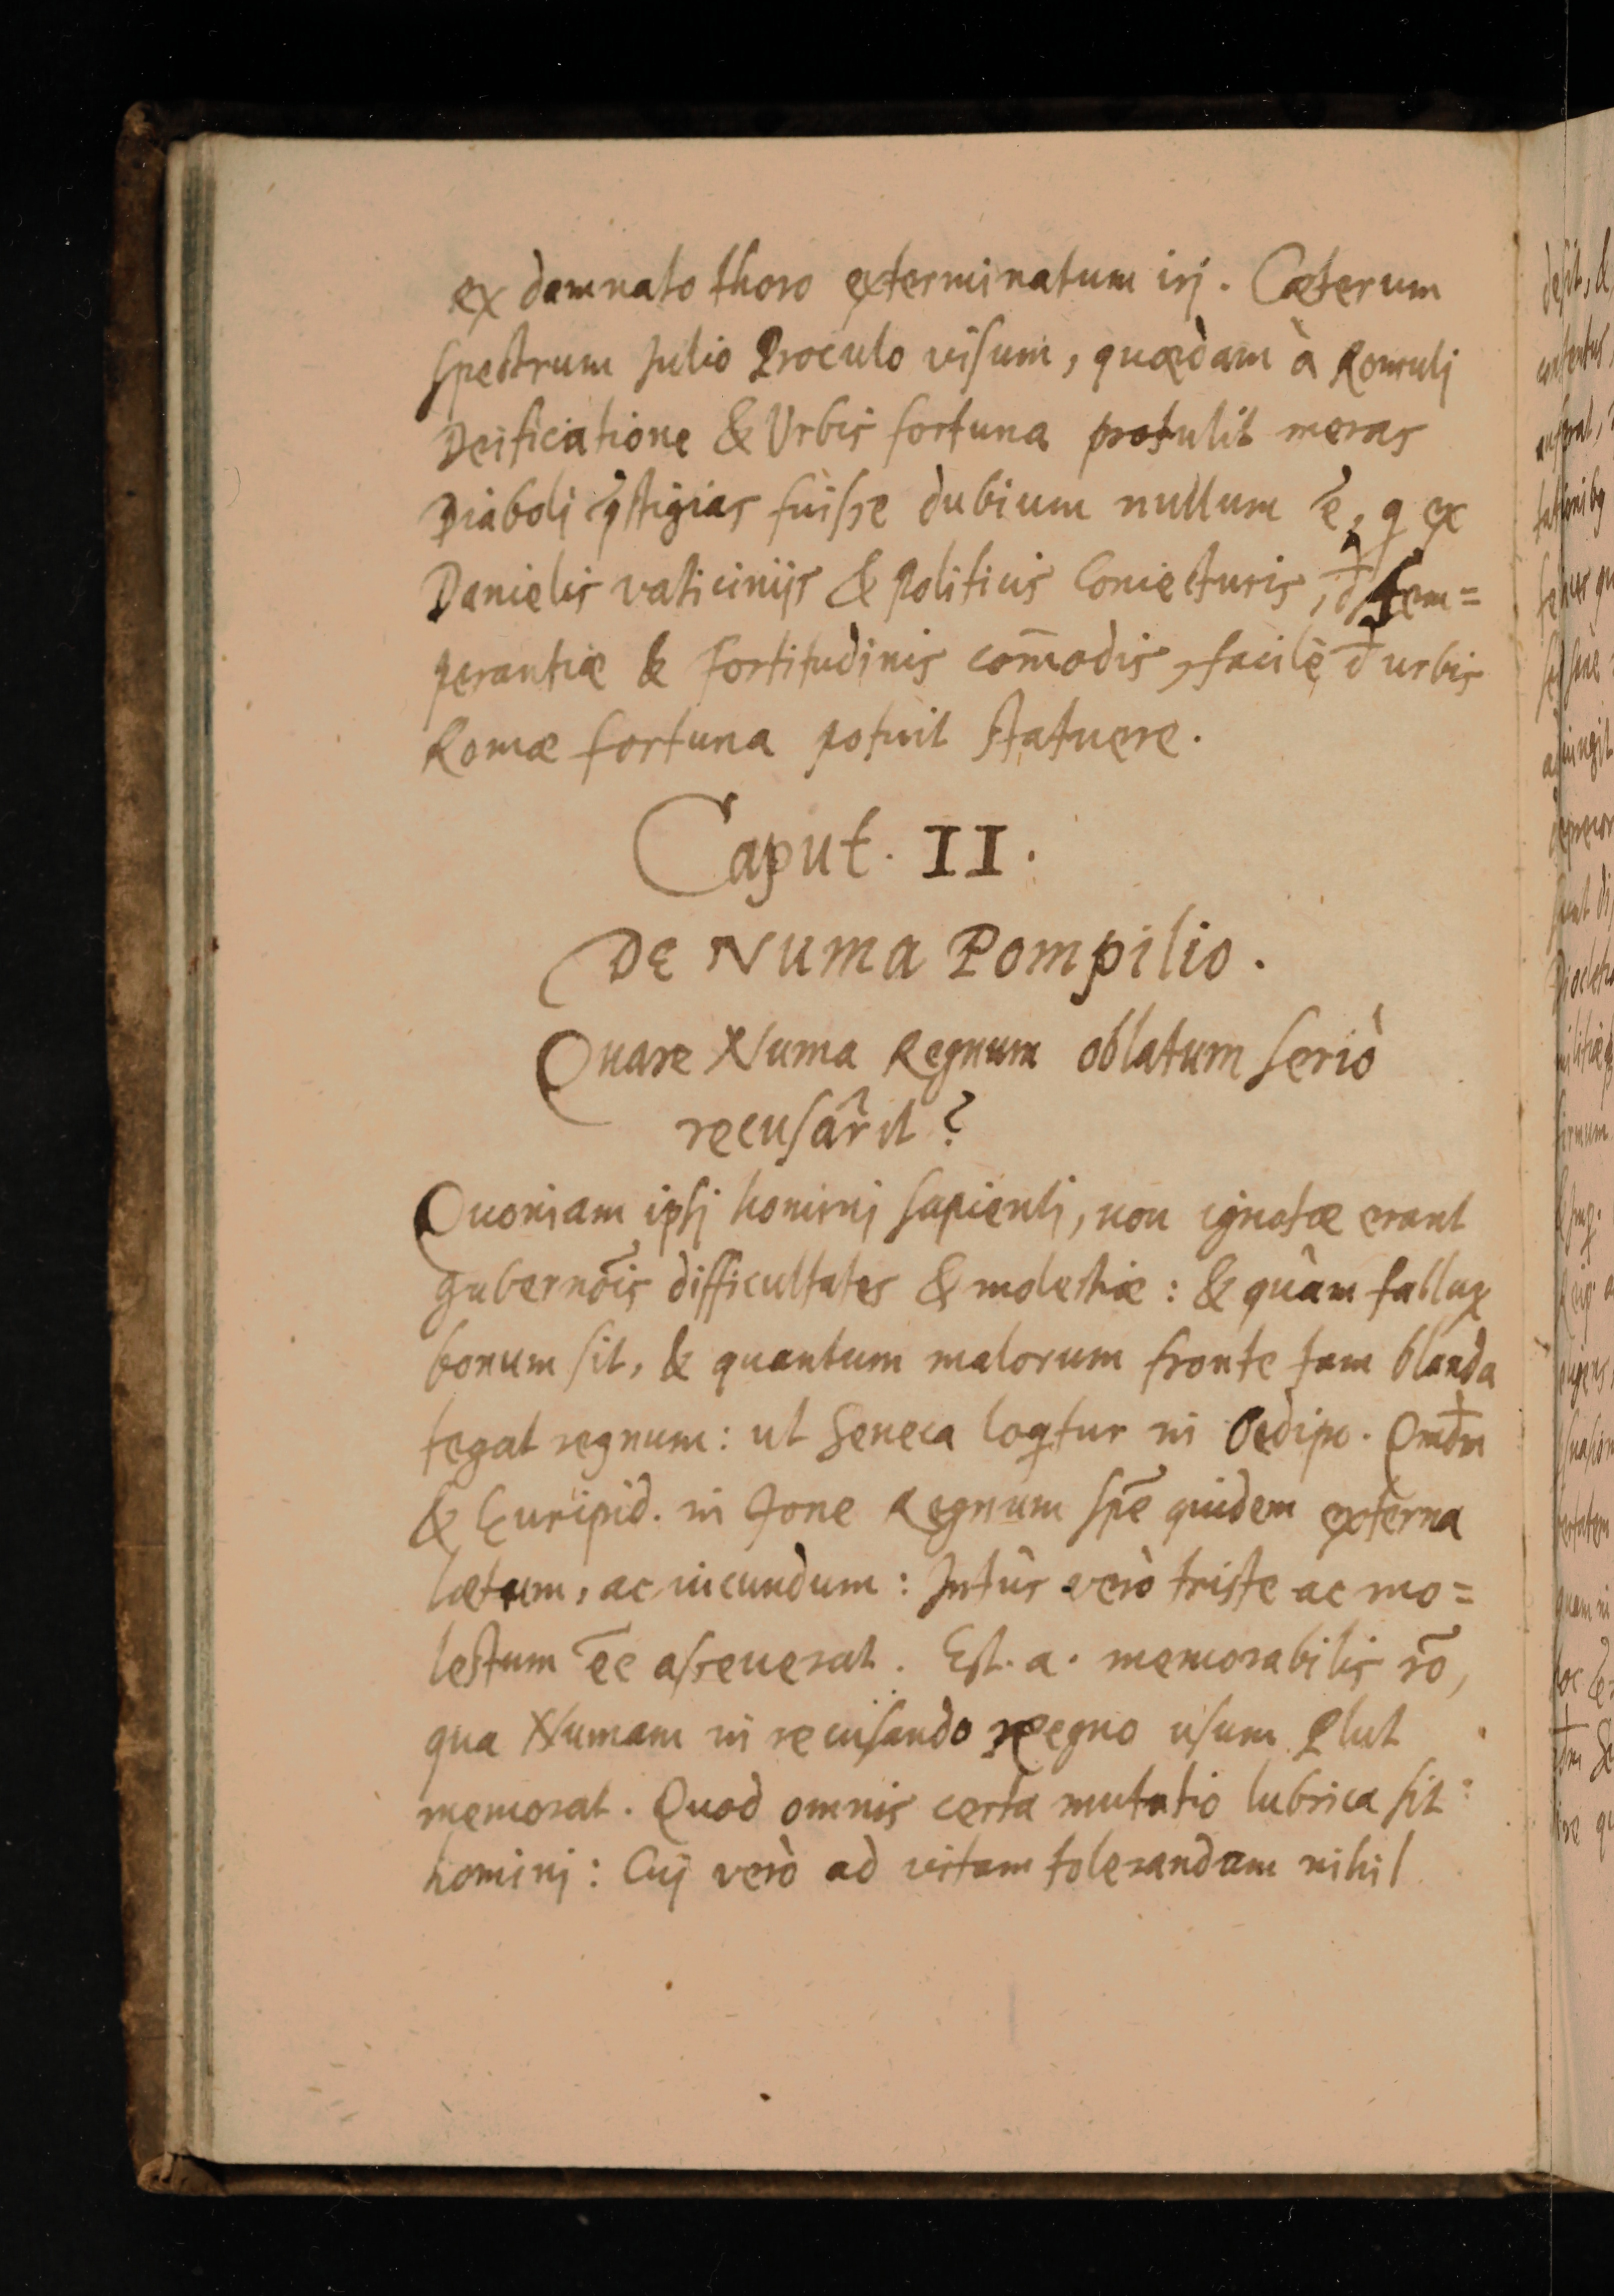 ex damnato thoro exterminatum irj. Cæterum
spectrum Julio Proculo visum, quædam à Romulj
Deificatione & Urbis fortuna protulit meras
Diabolj p̃stigias fuisse dubium nullum ẽ, q ex
Danielis vaticinijs & Politicis Coniecturis, đ tem=
perantiæ & fortitudinis com̄odis, facilè đ urbis
Romæ fortuna potuit statuere.
Caput. II.
De Numa Pompilio.
Quare Numa Regnum oblatum seriò
recusârit?
Quoniam ipsj hominj sapientj, non ignotæ erant
gubernõis difficultates & molestiæ: & quàm fallax
bonum sit, & quantum malorum fronte tam blanda
tegat regnum: ut Seneca loqtur in Oedipo.
& Euripid. in Jone Regnum spẽ quidem externa
lætum, ac iucundum: Intùs verò triste ac mo=
lestum ẽe asseuerat. Est. a. memorabilis rõ,
qua Numam in recusando regno usum Plut
memorat. Quod omnis certa mutatio lubrica sit
hominj: Cuj verò ad vitam tolerandam nihil